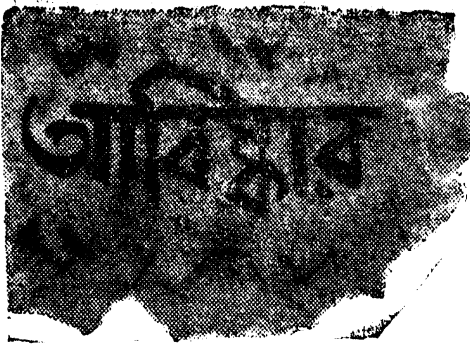 আবিষ্কার